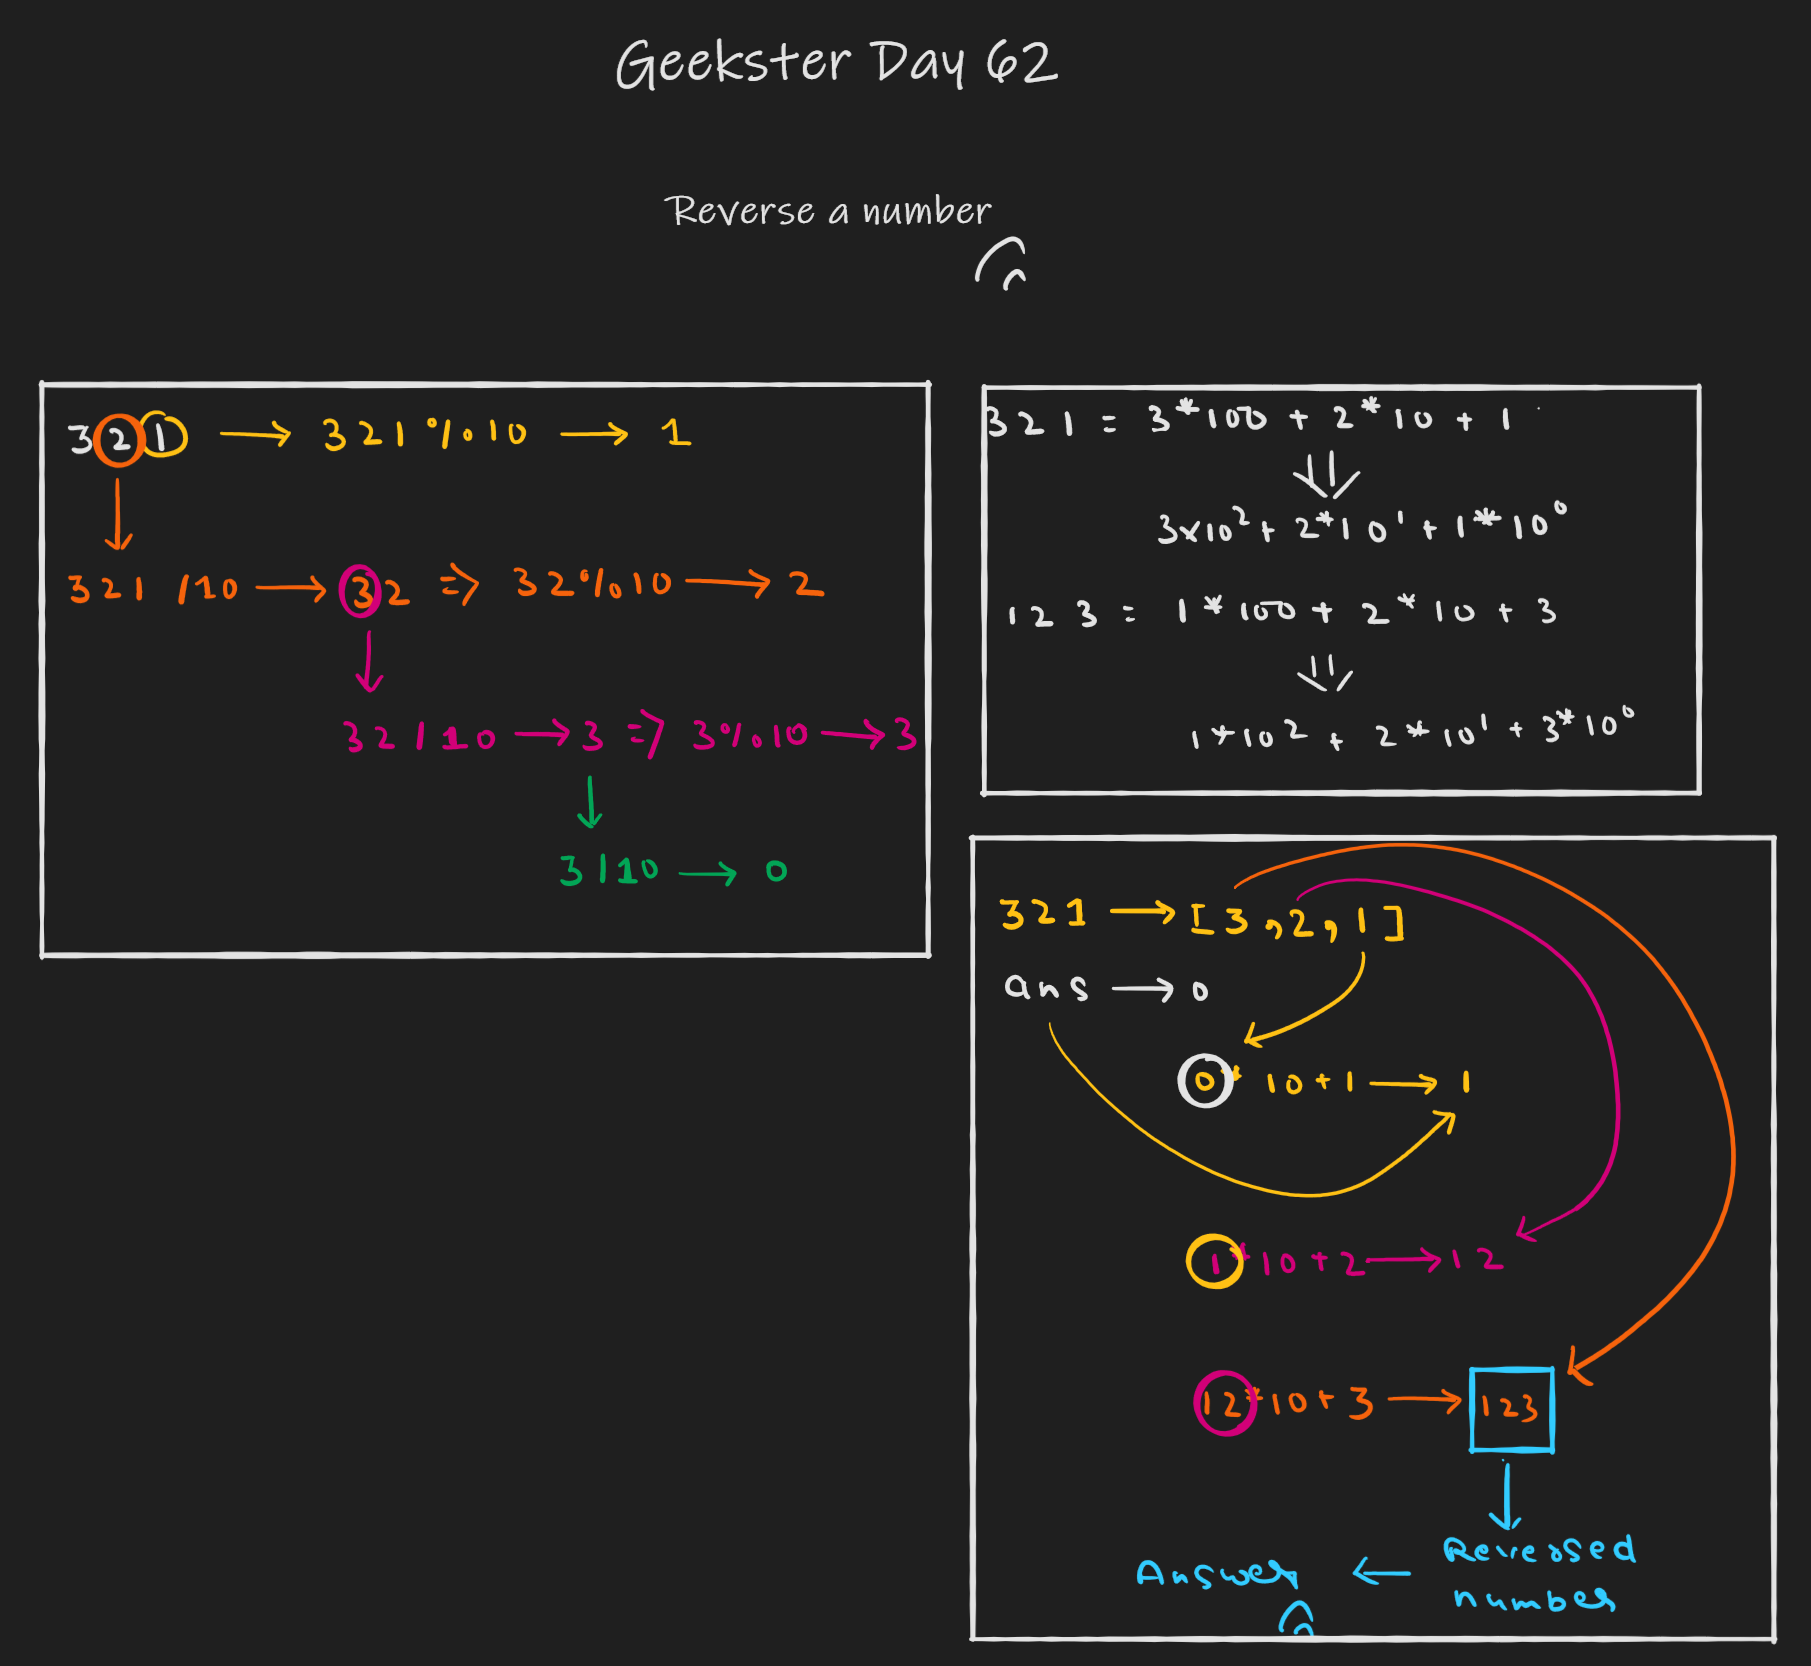 Geekster Day 62
Reverse a number
321 → 321%10 → 1
321/10 → 32 => 32%10 → 2
32/10 → 3 => 3%10 → 3
3/10 → 0
321 = 3*100 + 2*10 + 1
3×10² + 2*10¹ + 1*10⁰
123 = 1*100 + 2*10 + 3
1*10² + 2*10¹ + 3*10⁰
321 → [3,2,1]
ans → 0
0*10+1 → 1
1*10+2 → 12
12*10+3 → 123
Reversed
number
Answer ←